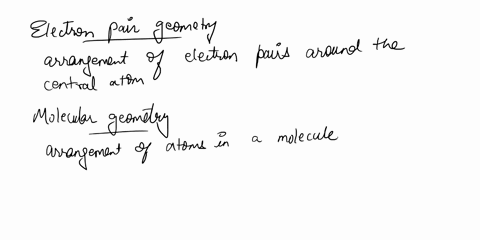 Electron pair geometry
arrangement of electron pairs around the
central atom
Molecular geometry
arrangement of atoms in a molecule